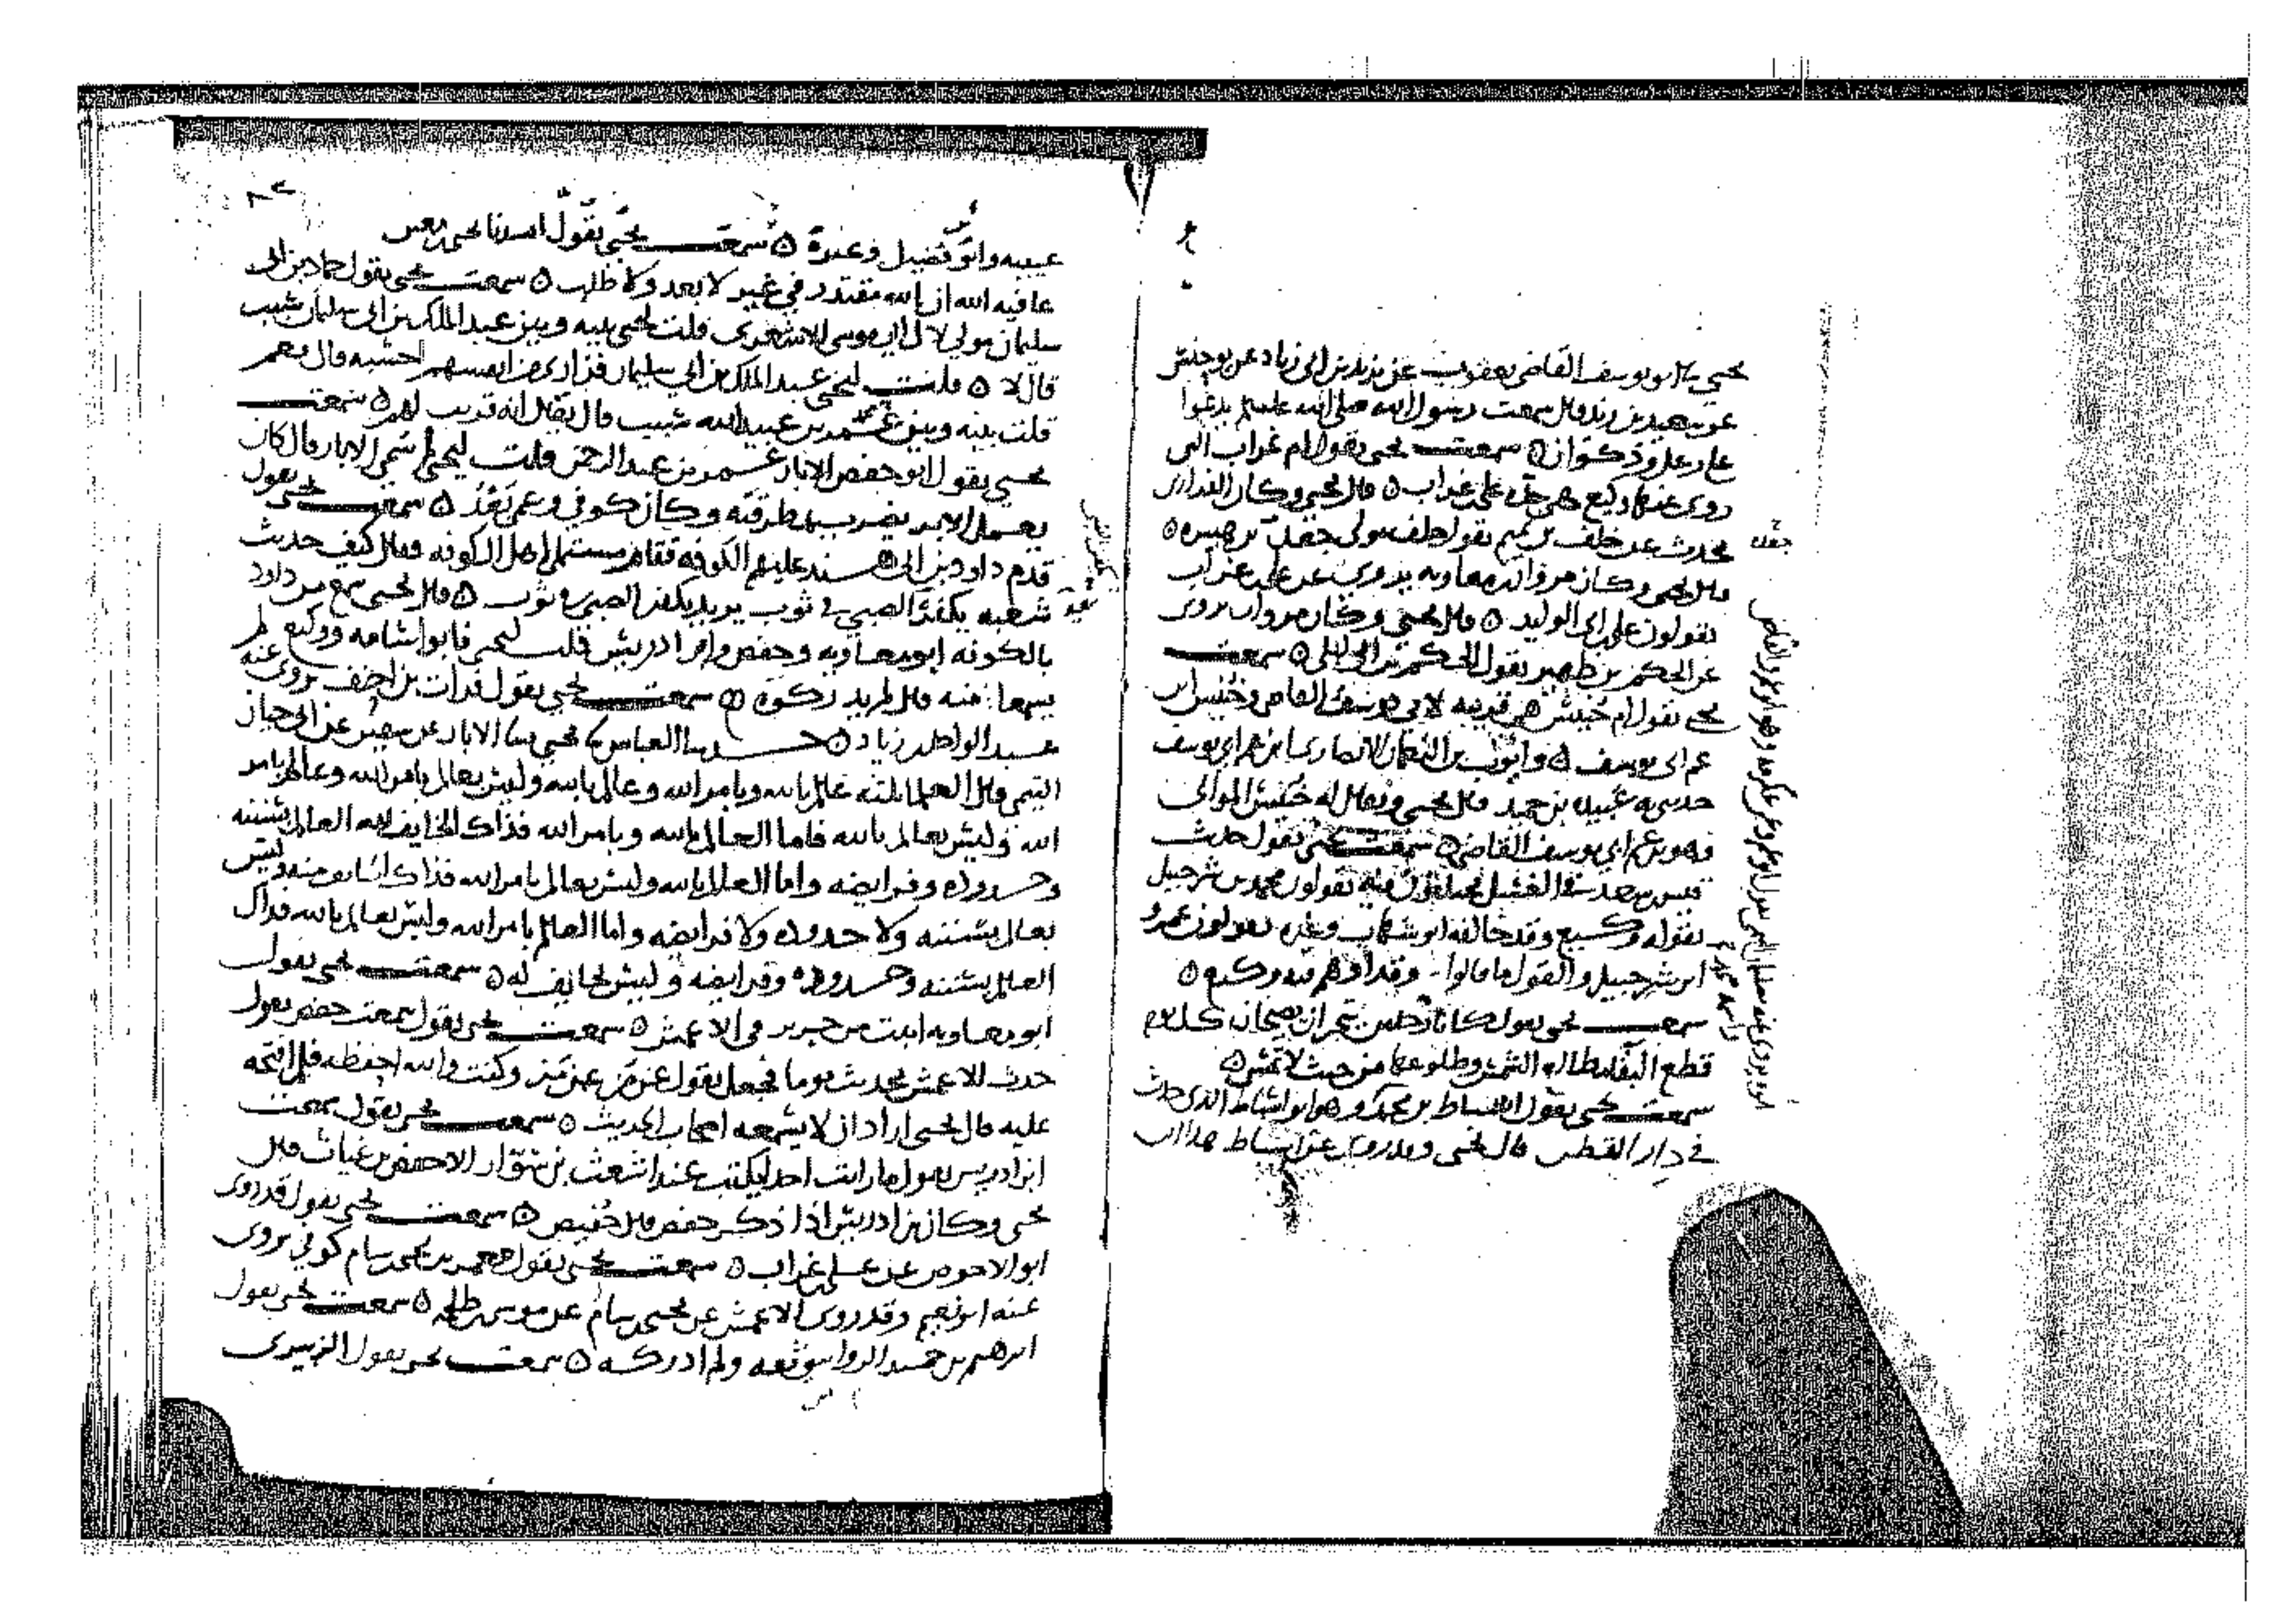 يحيى نا ابو يوسف القاضي يعقوب عن يزيد بن ابي زياد عن
سمعت رسول الله صلى الله عليه يدعوا
على رعل وذكوان ه سمعت يحيى يقول ام غراب التي
روى عنها وكيع هي جدة علي غراب ه قال يحيى وكان الفزاري
يحدث عن خلف بن تميم يقول خلف مولى جعدة بن هبيرة ه
قال يحيى وكان مروان بن معاوية يروي عن علي غراب
يقولون علي بن ابي الوليد ه قال يحيى وكان مروان يروي
عن الحكم بن ظهير يقول الحكم بن ابي ليلى ه سمعت
يحيى يقول ام خنيس هي قريبة لابي يوسف القاضي وخنيس ابن
عم ابي يوسف ه وايوب بن النعمان الانصاري ابن عم ابي يوسف
حدث به عبيد بن حميد قال يحيى ويقال له خنيس الموالي
وهو بن عم ابي يوسف القاضي ه سمعت يحيى يقول حديث
قيس بن سعد في الغسل يختلفون فيه يقولون محمد بن شرحبيل
يقوله وكيع وقد خالفه ابو شهاب وغيره يقولون عمرو
ابن شرحبيل والقول ما قالوا وقد اوهم فيه وكيع ه
سمعت يحيى يقول كانا رجلين
قطع الشمس وطلوعها من حيث لا تمس ه
سمعت يحيى يقول اسباط بن محمد هو ابو اسباط الذي حدث
في دار القطن قال يحيى وقد روى عن اسباط هذا ابن
جعدة
عيينة وابو فضيل وغيره ه سمعت يحيى يقول انشدنا يحيى بن معين
عافية الله ان الله مقتدر في غير لا بعد ولا طلب ه سمعت يحيى يقول حماد بن ابي
سليمان مولى لال ابي موسى الاشعري قلت ليحيى بينه وبين عبد الملك بن ابي سليمان نسب
قال لا ه قلت ليحيى عبد الملك بن ابي سليمان فزاري من انفسهم احسبه قال نعم
قلت بينه وبين محمد بن عبيد الله نسب قال يقال انه قريب لهم ه سمعت
يحيى يقول ابو حفص الابار عمر بن عبد الرحمن قلت ليحيى لم سمي الابار قال كان
يعمل الابر يضرب بمطرقته وكان كوفي وعمي بعد ه سمعت يحيى يقول
قدم داود بن ابي هند عليهم الكوفة فقام مستملي اهل الكوفة فقال كيف حديث
شعبة يكفن الصبي في ثوب يريد يكفن الصبي في ثوب ه قال يحيى سمع من داود
بالكوفة ابو معاوية وحفص وابن ادريس قلت ليحيى فابو اسامة ووكيع لم
يسمعا منه قال لم يدركوه ه سمعت يحيى يقول فرات بن احنف يروي عنه
عبد الواحد بن زياد ه حدثنا العباس نا يحيى نا الابار عن سفيان عن ابي حيان
التيمي قال العلماء ثلثة عالم بالله وبامر الله وعالم بالله وليس بعالم بامر الله وعالم بامر
الله وليس بعالم بالله فاما العالم بالله وبامر الله فذاك الخايف لله العالم بسننه
وحدوده وفرايضه واما العالم بالله وليس بعالم بامر الله فذاك الخايف منه وليس
بعالم بسننه ولا حدوده ولا فرايضه واما العالم بامر الله وليس بعالم بالله فذاك
العالم بسننه وحدوده وفرايضه وليس بخايف له ه سمعت يحيى يقول
ابو معاوية اثبت من جرير في الاعمش ه سمعت يحيى يقول سمعت حفص يقول
حدث الاعمش بحديث يوما فجعل يقول عن من عن من وكنت والله احفظه فلم افتحه
عليه قال يحيى اراد ان لا يسمعه اصحاب الحديث ه سمعت يحيى يقول سمعت
ابن ادريس يقول ما رايت احدا يكتب عند اشعث بن سوار الا حفص بن غياث قال
يحيى وكان بن ادريس اذا ذكر حفص قال حفيص ه سمعت يحيى يقول قد روى
ابو الاحوص عن علي غراب ه سمعت يحيى يقول معمر بن يحيى بن سام كوفي يروي
عنه ابو نعيم وقد روى الاعمش عن يحيى بن سام عن موسى بن طلحة ه سمعت يحيى يقول
ابرهيم بن حميد الرواسي ثقة ولم ادركه ه سمعت يحيى يقول الزبيري